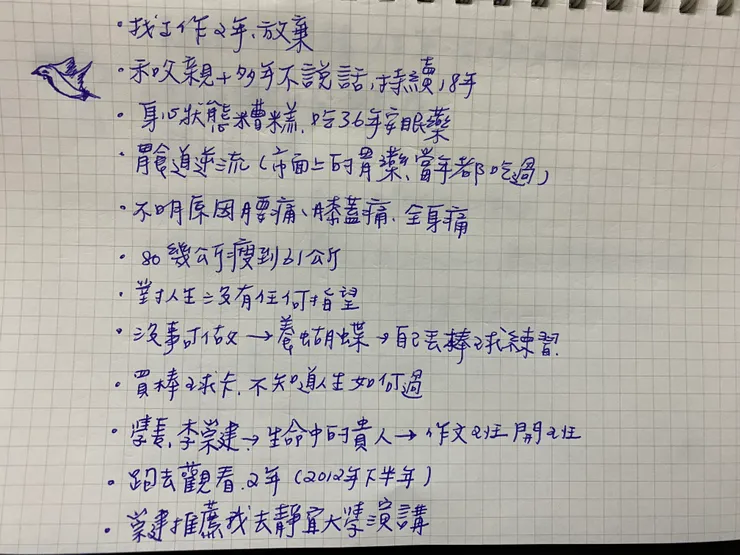 ・找工作2年、放棄
・和父親十多年不說話,持續18年
・身心狀態糟糕,吃36年安眠藥
・胃食道逆流(市面上的胃藥,當年都吃過)
・不明原因腰痛、膝蓋痛、全身痛
・80幾公斤瘦到61公斤
・對人生沒有任何指望
・沒事可做→養蝴蝶→自己丟棒球練習.
・買棒球卡,不知道人生如何過
・學長,李崇建→生命中的貴人→作文班開班
・跑去觀看.2年(2012年下半年)
・崇建推薦我去靜宜大學演講